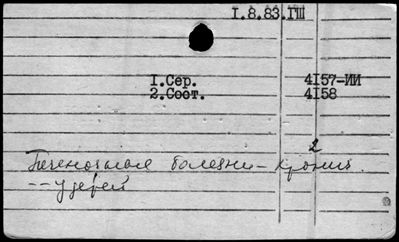 I.8.83.ГШ
I.Сер. 4I57-ИИ
2.Соот. 4I58
2
Печеночные болезни - хронич.
-- у детей